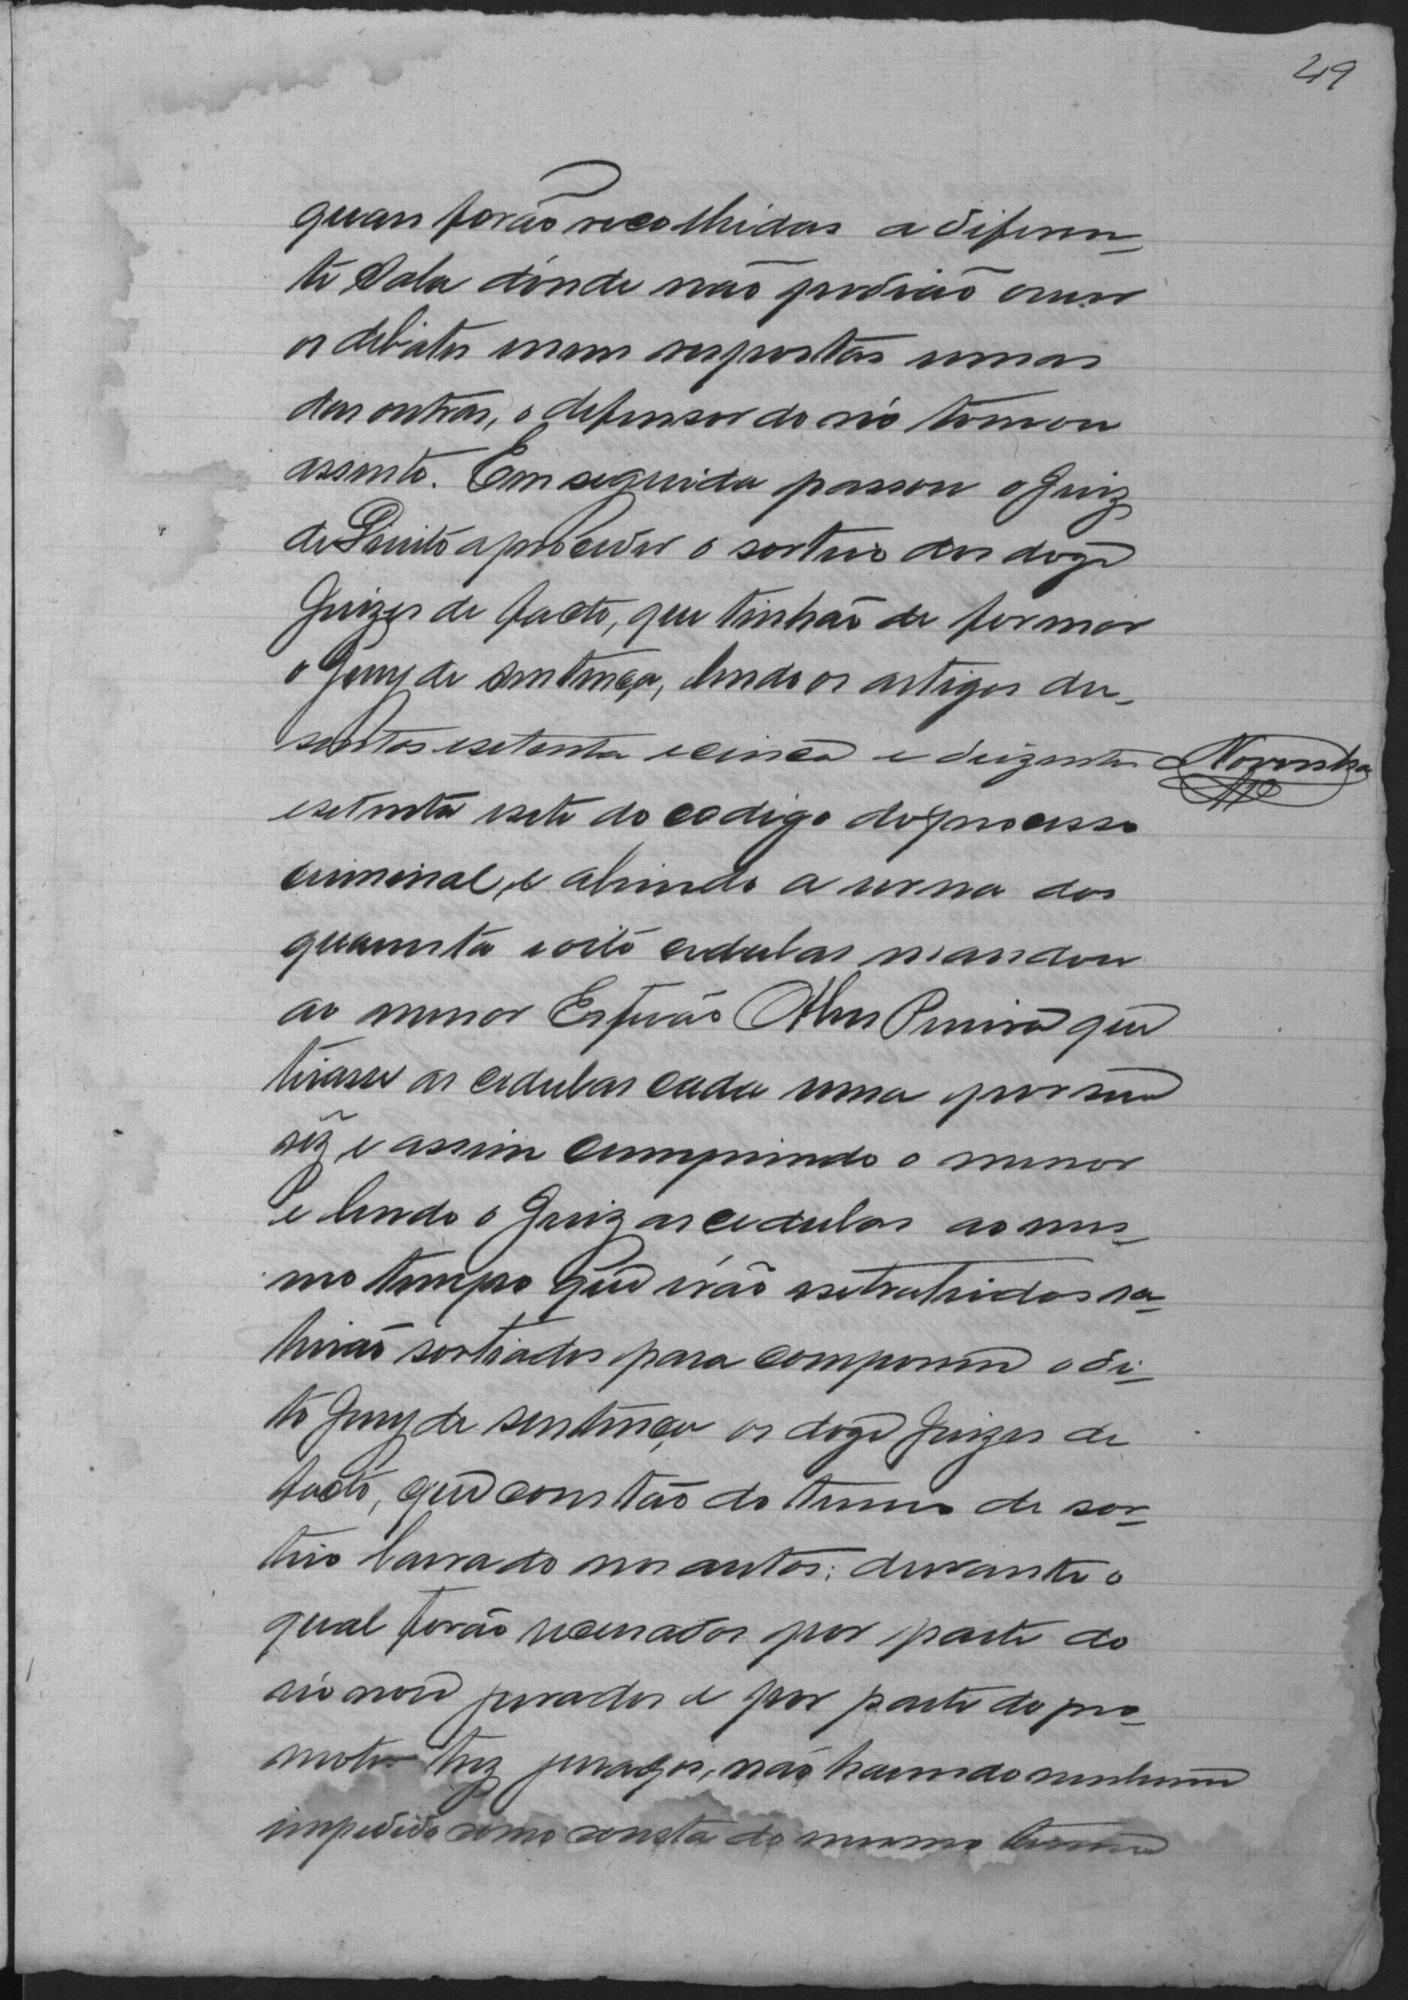 49
quaes forão recolhidas a diferen-
te Sala dónde não podião ouvir
os debates nem respostas umas
das outras, o defensor do réo tomou
assento. Em seguida passou o Juiz
de Direito a proceder o sorteio dos doze
Juizes de facto, que tinhão de formar
o Jury de sentença, lendo os artigos du-
sentos e setenta e cinco e duzentos
Noronha
e setenta e sete do codigo do processo
criminal, e abrindo a urna das
quarenta e oito cedulas mandou
ao menor Estevão Alves Pereira que
tirasse as cedulas cada uma por sua
vêz, e assim cumprindo o menor
e lendo o Juiz as cedulas ao mes-
mo tempo que irão extrahidas sa-
hirão sortiados para comporem o di-
to Jury de sentença os doze Juizes de
facto, que constão do termo de sor-
teio lavrado nos autos; durante o
qual forão recusados por parte do
réo nove jurados e por parte do pro-
motor trez jurados, não havendo nenhum
impedido como consta do mesmo termo